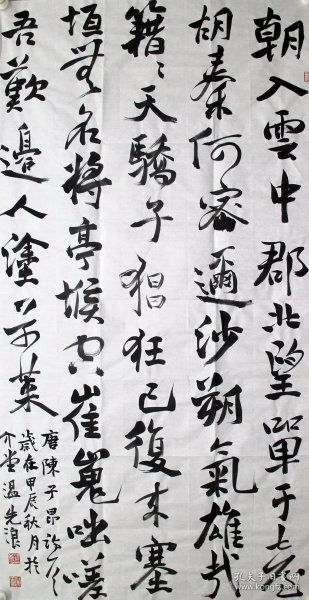 朝入雲中郡北望單于台
胡秦何密邇沙朔氣雄哉
籍〻天驕子猖狂已復来塞
垣無名將亭堠空崔嵬咄嗟
吾歎邊人塗草莱
唐陳子昂詩
歲在甲辰秋月於
堂温先浪
孔夫子旧书网